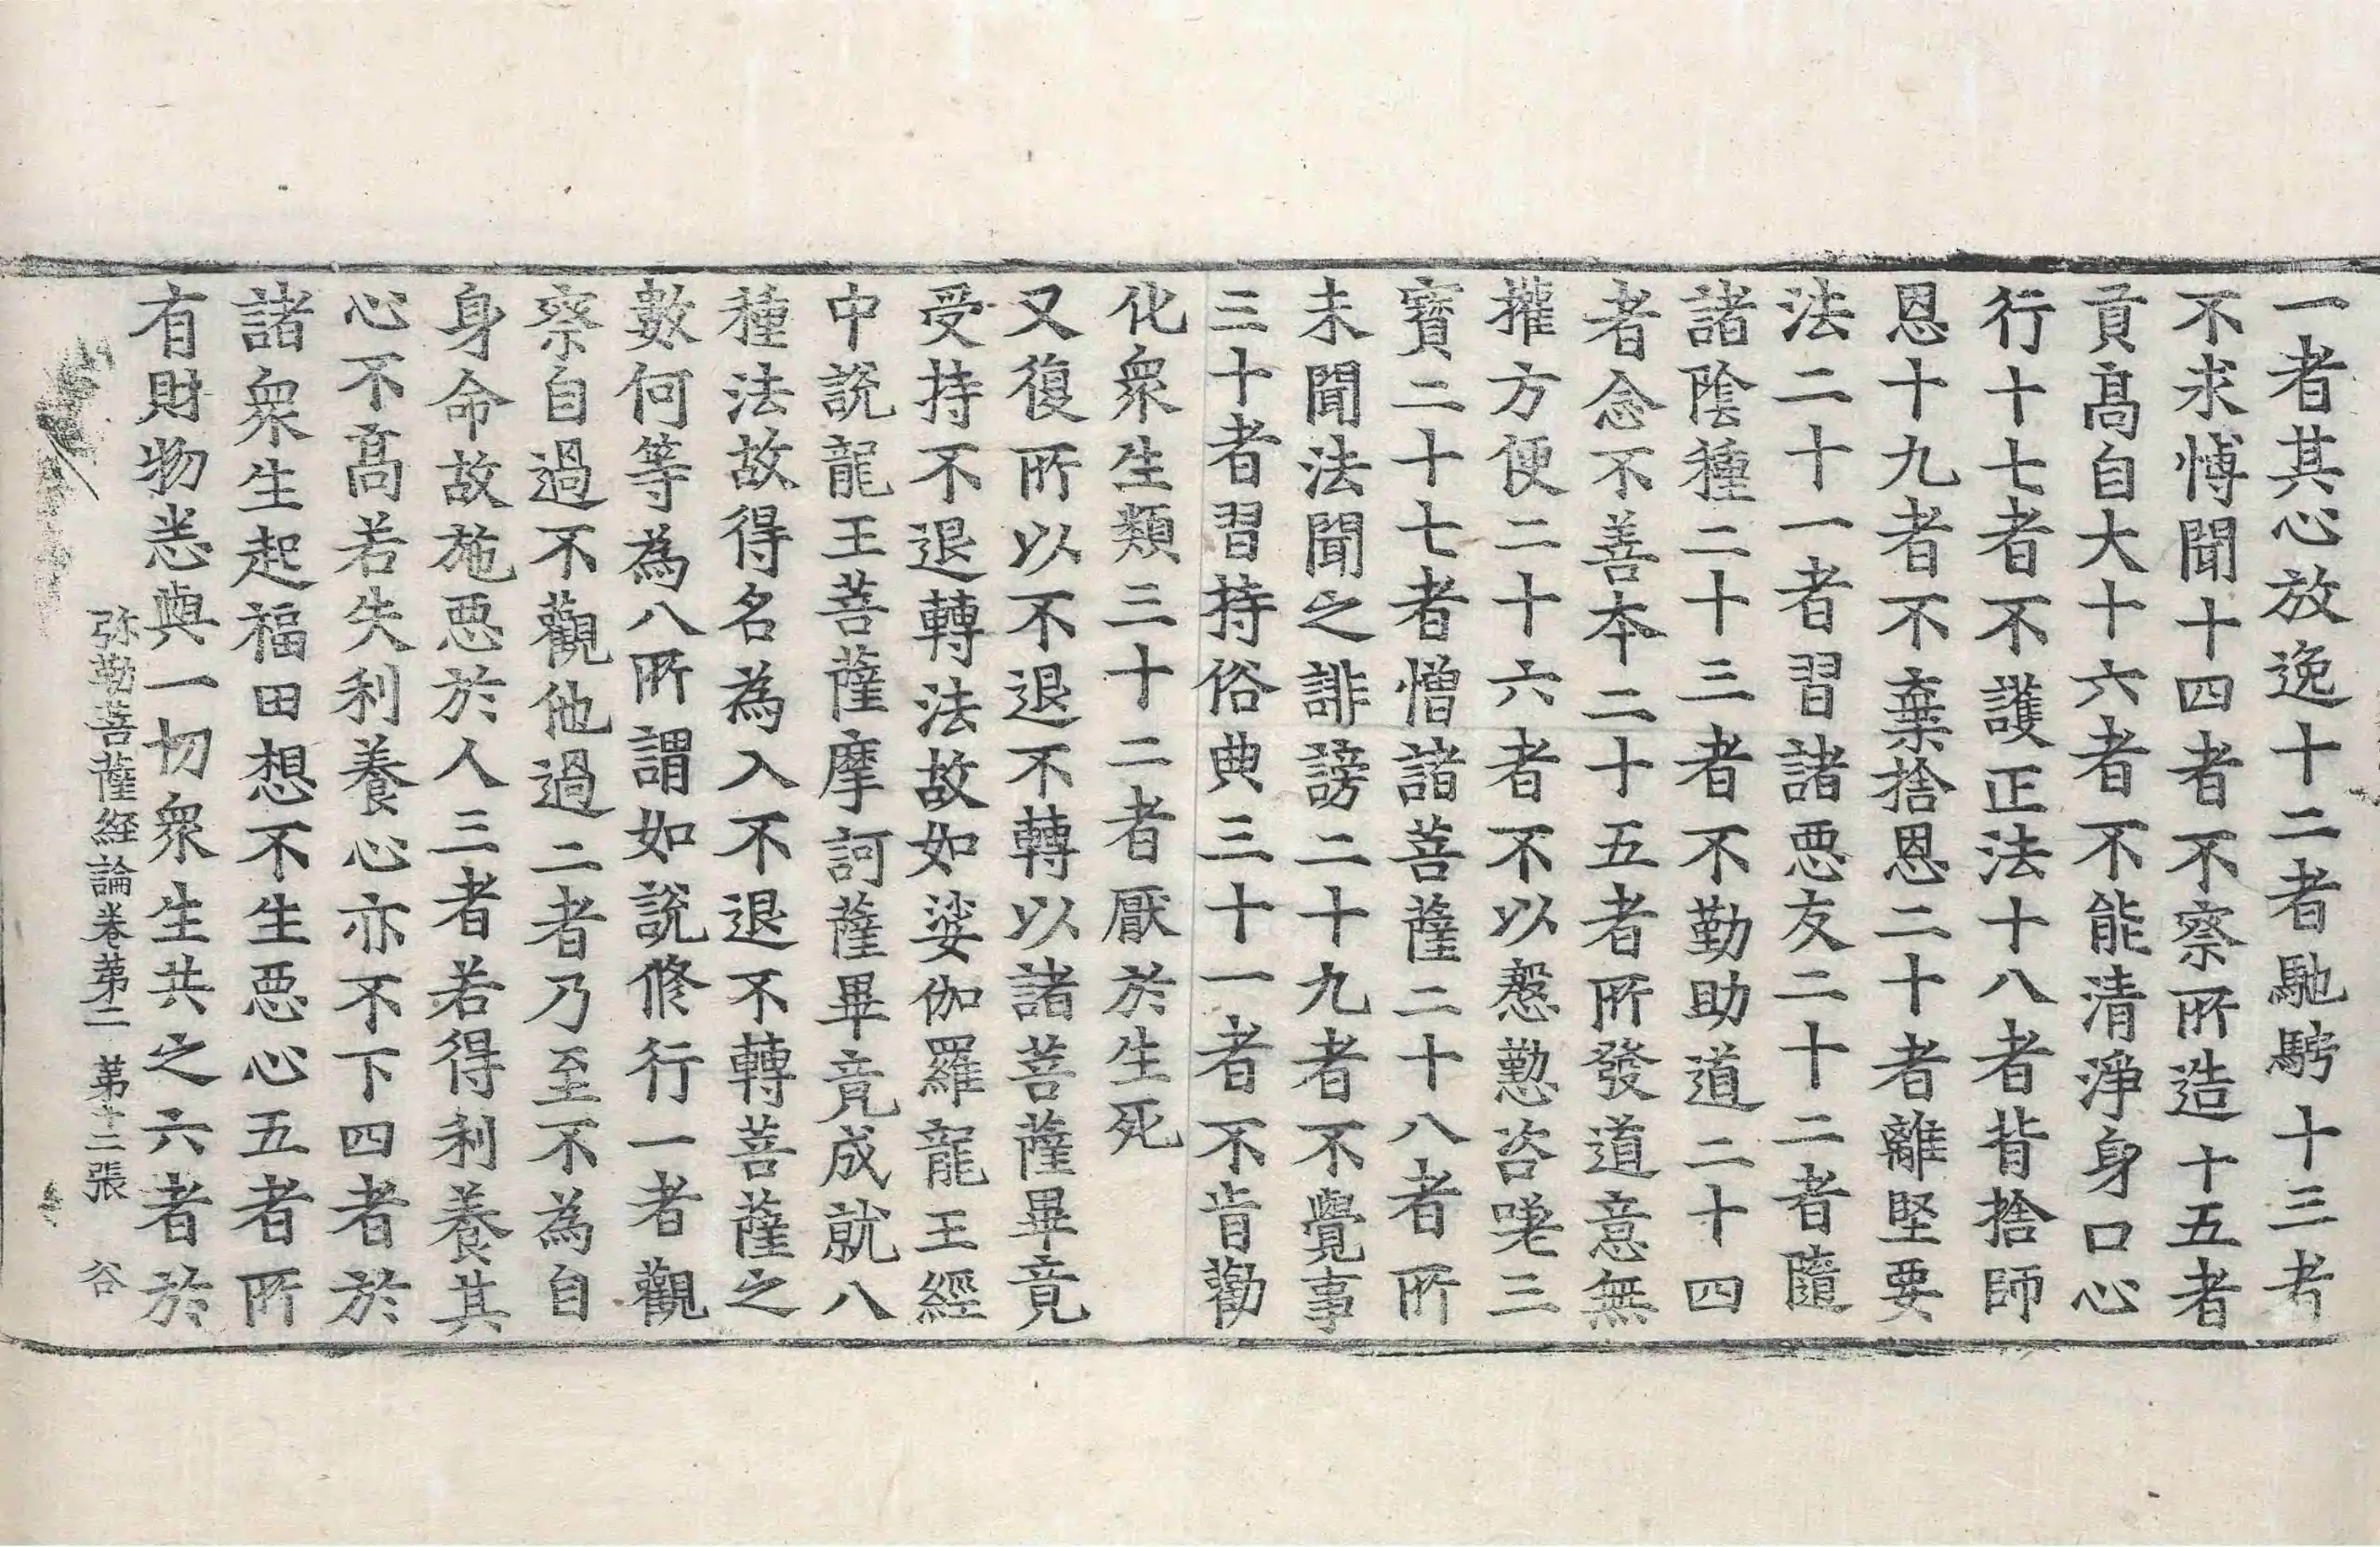 一者其心放逸十二者馳騁十三者
不求博聞十四者不察所造十五者
貢髙自大十六者不能清淨身口心
行十七者不護正法十八者背捨師
恩十九者不棄捨恩二十者離堅要
法二十一者習諸惡友二十二者隨
諸陰種二十三者不勤助道二十四
者念不善本二十五者所發道意無
權方便二十六者不以慇懃咨嗟三
寶二十七者憎諸菩薩二十八者所
未聞法聞之誹謗二十九者不覺事
三十者習持俗典三十一者不肯勸
化衆生類三十二者厭於生死
又復所以不退不轉以諸菩薩畢竟
受持不退轉法故如娑伽羅龍王經
中說龍王菩薩摩訶薩畢竟成就八
種法故得名為入不退不轉菩薩之
數何等為八所謂如說修行一者觀
察自過不觀他過二者乃至不為自
身命故施惡於人三者若得利養其
心不髙若失利養心亦不下四者於
諸衆生起福田想不生惡心五者所
有財物悉與一切衆生共之六者於
弥勒菩薩經論卷第二 第十二張 谷